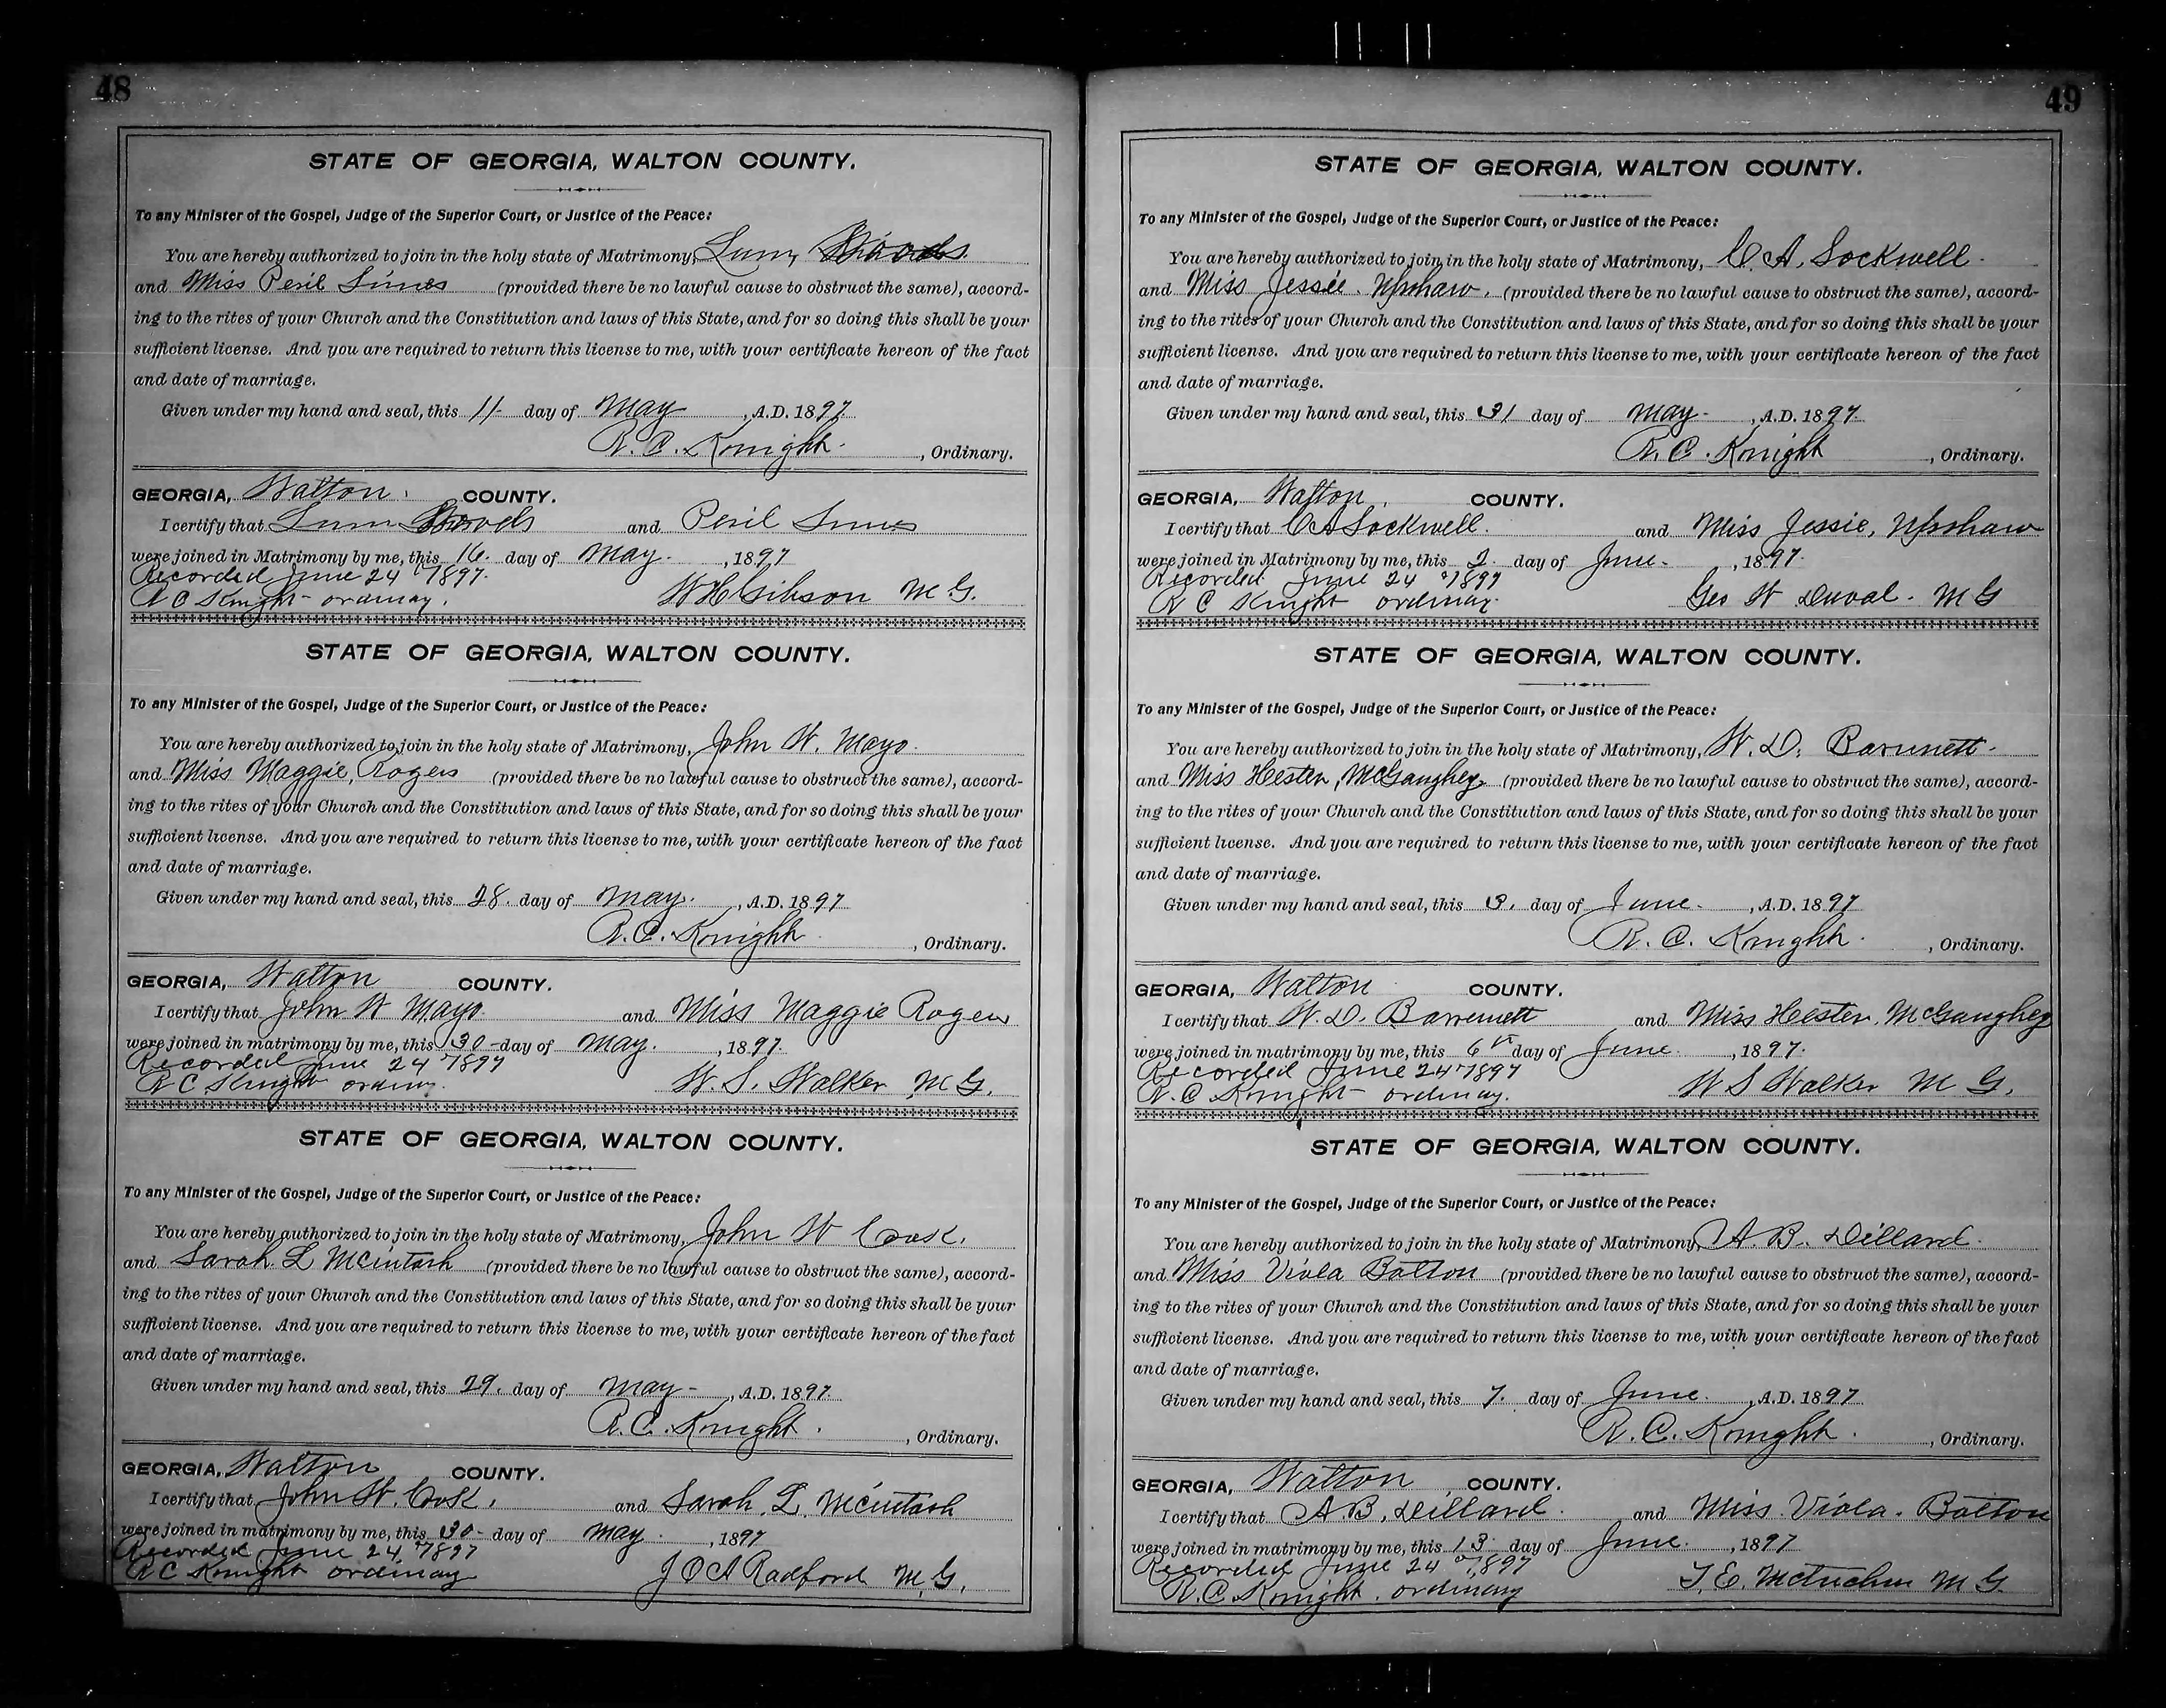 48
STATE OF GEORGIA, WALTON COUNTY.
To any Minister of the Gospel, Judge of the Superior Court, or Justice of the Peace:
You are hereby authorized to join in the holy state of Matrimony, Lum
and Miss Peril Simes (provided there be no lawful cause to obstruct the same), accord-
ing to the rites of your Church and the Constitution and laws of this State, and for so doing this shall be your
sufficient license. And you are required to return this license to me, with your certificate hereon of the fact
and date of marriage.
Given under my hand and seal, this 11 day of May, A.D. 1897.
R. C. Knight, Ordinary.
GEORGIA, Walton. COUNTY.
I certify that Lum and Peril Simes
were joined in Matrimony by me, this 16. day of May., 1897
Recorded June 24" 1897.
R C Knight ordinary.
W H Gibson M. G.
STATE OF GEORGIA, WALTON COUNTY.
To any Minister of the Gospel, Judge of the Superior Court, or Justice of the Peace:
You are hereby authorized to join in the holy state of Matrimony, John W. Mayo.
and Miss Maggie, Rogers (provided there be no lawful cause to obstruct the same), accord-
ing to the rites of your Church and the Constitution and laws of this State, and for so doing this shall be your
sufficient license. And you are required to return this license to me, with your certificate hereon of the fact
and date of marriage.
Given under my hand and seal, this 28. day of May., A.D. 1897
R. C. Knight, Ordinary.
GEORGIA, Walton COUNTY.
I certify that John W Mayo. and Miss Maggie Rogers
were joined in matrimony by me, this 30- day of May., 1897.
Recorded June 24" 1897
R C Knight ordinary.
W. S. Walker M. G.
STATE OF GEORGIA, WALTON COUNTY.
To any Minister of the Gospel, Judge of the Superior Court, or Justice of the Peace:
You are hereby authorized to join in the holy state of Matrimony, John W Cook.
and Sarah. L McIntosh (provided there be no lawful cause to obstruct the same), accord-
ing to the rites of your Church and the Constitution and laws of this State, and for so doing this shall be your
sufficient license. And you are required to return this license to me, with your certificate hereon of the fact
and date of marriage.
Given under my hand and seal, this 29. day of May-, A.D. 1897.
R. C. Knight., Ordinary.
GEORGIA, Walton COUNTY.
I certify that John W. Cook. and Sarah. L. McIntosh
were joined in matrimony by me, this 30- day of May., 1897
Recorded June 24" 1897
R C Knight ordinary
J O A Radford M. G.
49
STATE OF GEORGIA, WALTON COUNTY.
To any Minister of the Gospel, Judge of the Superior Court, or Justice of the Peace:
You are hereby authorized to join in the holy state of Matrimony, C. A. Sockwell.
and Miss Jessie. Upshaw. (provided there be no lawful cause to obstruct the same), accord-
ing to the rites of your Church and the Constitution and laws of this State, and for so doing this shall be your
sufficient license. And you are required to return this license to me, with your certificate hereon of the fact
and date of marriage.
Given under my hand and seal, this 31 day of May-, A.D. 1897.
R. C. Knight, Ordinary.
GEORGIA, Walton. COUNTY.
I certify that C A Sockwell. and Miss Jessie, Upshaw
were joined in Matrimony by me, this 2. day of June-, 1897.
Recorded June 24" 1897
R C Knight ordinary.
Geo W Duval. M G
STATE OF GEORGIA, WALTON COUNTY.
To any Minister of the Gospel, Judge of the Superior Court, or Justice of the Peace:
You are hereby authorized to join in the holy state of Matrimony, W. D. Barrnett-
and Miss Hester, McGaughey (provided there be no lawful cause to obstruct the same), accord-
ing to the rites of your Church and the Constitution and laws of this State, and for so doing this shall be your
sufficient license. And you are required to return this license to me, with your certificate hereon of the fact
and date of marriage.
Given under my hand and seal, this 3. day of June-, A.D. 1897
R. C. Knight., Ordinary.
GEORGIA, Walton COUNTY.
I certify that W. D. and Miss Hester. McGaughey
were joined in matrimony by me, this 6th day of June., 1897.
Recorded June 24" 1897
R. C Knight ordinary.
W S Walker M G.
STATE OF GEORGIA, WALTON COUNTY.
To any Minister of the Gospel, Judge of the Superior Court, or Justice of the Peace:
You are hereby authorized to join in the holy state of Matrimony, A. B. Dillard.
and Miss Viola Bolton (provided there be no lawful cause to obstruct the same), accord-
ing to the rites of your Church and the Constitution and laws of this State, and for so doing this shall be your
sufficient license. And you are required to return this license to me, with your certificate hereon of the fact
and date of marriage.
Given under my hand and seal, this 7. day of June., A.D. 1897
R. C. Knight., Ordinary.
GEORGIA, Walton COUNTY.
I certify that A. B. Dillard. and Miss. Viola. Bolton
were joined in matrimony by me, this 13 day of June., 1897
Recorded June 24" 1897
R. C. Knight. ordinary
T. E. M G